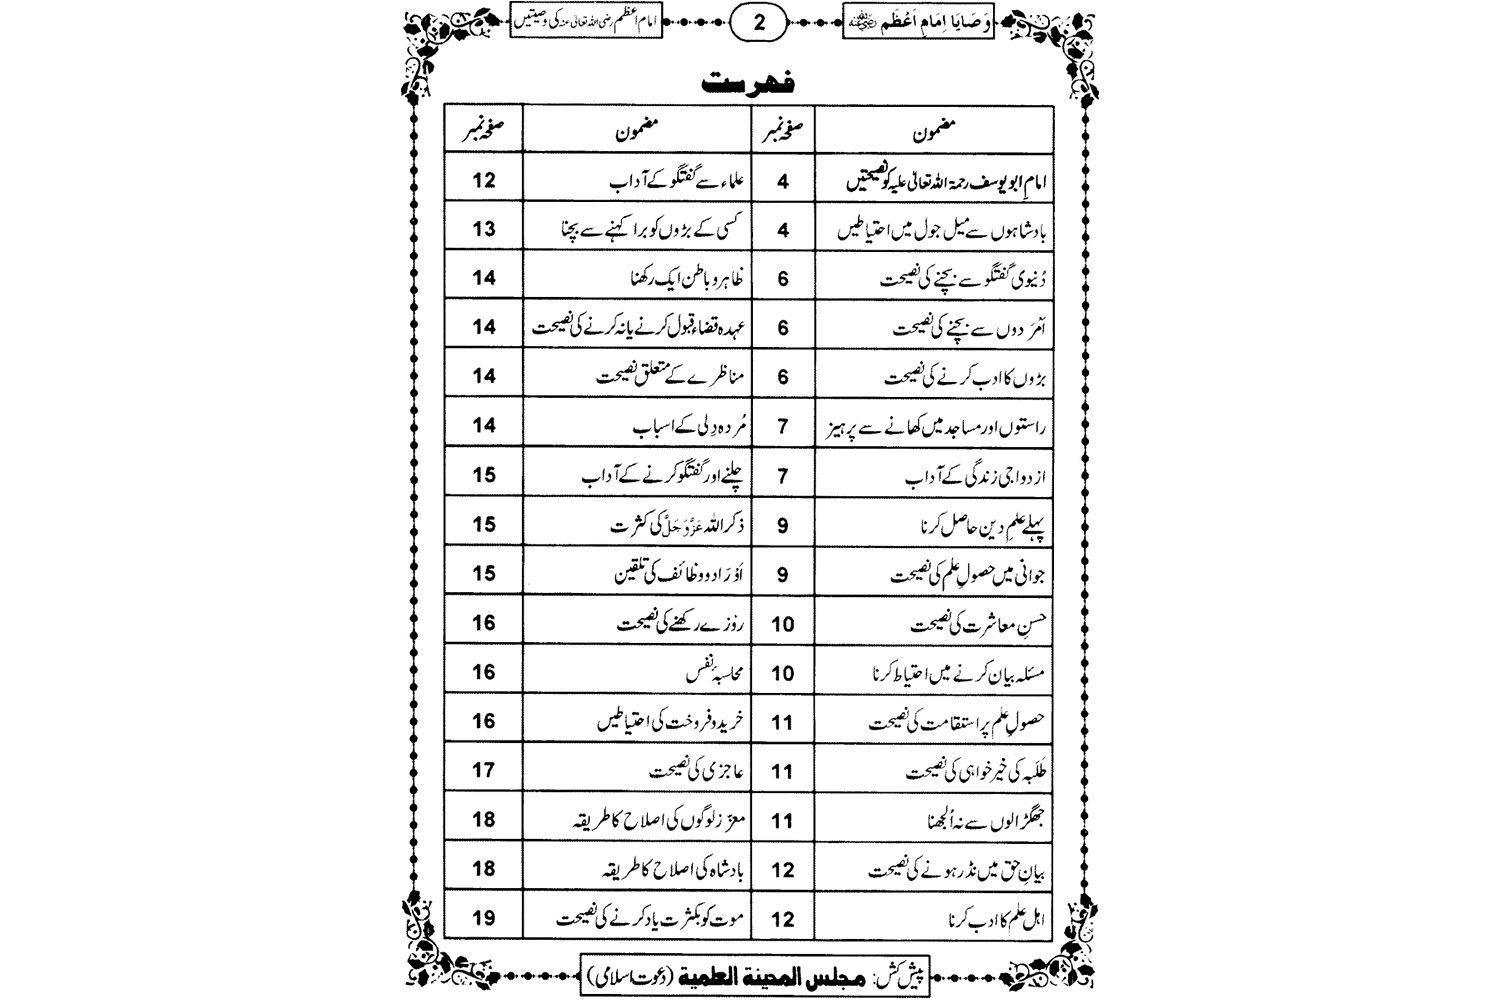 وَصَایَا اِمَامِ اَعْظَم رضی اللہ عنہ 2 امام اعظم رضی اللہ تعالیٰ عنہ کی وصیتیں
فہرست
مضمون صفحہ نمبر مضمون صفحہ نمبر
امامِ ابو یوسف رحمۃ اللہ تعالیٰ علیہ کو نصیحتیں 4 علماء سے گفتگو کے آداب 12
بادشاہوں سے میل جول میں احتیاطیں 4 کسی کے بڑوں کو برا کہنے سے بچنا 13
دُنیوی گفتگو سے بچنے کی نصیحت 6 ظاہر و باطن ایک رکھنا 14
اَمْرَدوں سے بچنے کی نصیحت 6 عہدہ قضاء قبول کرنے یا نہ کرنے کی نصیحت 14
بڑوں کا ادب کرنے کی نصیحت 6 مناظرے کے متعلق نصیحت 14
راستوں اور مساجد میں کھانے سے پرہیز 7 مُردہ دِلی کے اسباب 14
ازدواجی زندگی کے آداب 7 چلنے اور گفتگو کرنے کے آداب 15
پہلے علمِ دین حاصل کرنا 9 ذکر اللہ عَزَّوَجَلَّ کی کثرت 15
جوانی میں حصولِ علم کی نصیحت 9 اَوْرَاد و وظائف کی تلقین 15
حسنِ معاشرت کی نصیحت 10 روزے رکھنے کی نصیحت 16
مسئلہ بیان کرنے میں احتیاط کرنا 10 محاسبۂ نفس 16
حصولِ علم پر استقامت کی نصیحت 11 خرید و فروخت کی احتیاطیں 16
طَلَبہ کی خیر خواہی کی نصیحت 11 عاجزی کی نصیحت 17
جھگڑالوں سے نہ اُلجھنا 11 معزز لوگوں کی اصلاح کا طریقہ 18
بیانِ حق میں نڈر ہونے کی نصیحت 12 بادشاہ کی اصلاح کا طریقہ 18
اہل علم کا ادب کرنا 12 موت کو بکثرت یاد کرنے کی نصیحت 19
پیش کش: مجلس المدینۃ العلمیۃ (دعوت اسلامی)